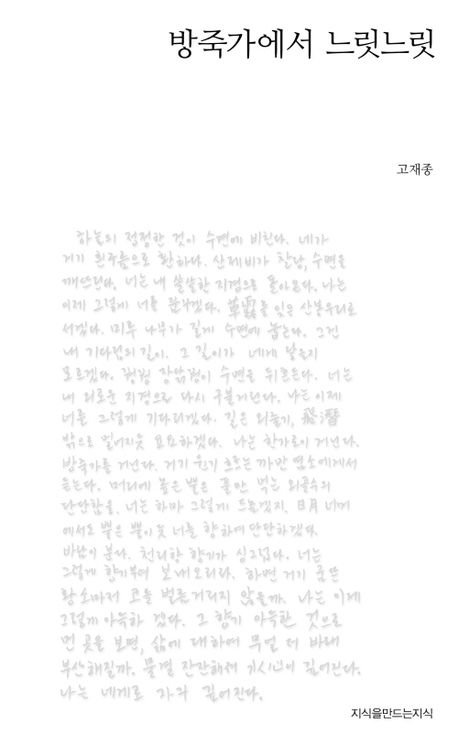 방죽가에서 느릿느릿
고재종
하늘의 정정한 것이 수면에 비친다. 네가
거기 흰구름으로 환하다. 산제비가 찰랑, 수면을
깨뜨린다. 너는 내 쓸쓸한 지경으로 돌아온다. 나는
이제 그렇게 너를 꿈꾸겠다. 草露를 잊은 산봉우리로
서겠다. 미루나무가 길게 수면에 눕는다. 그건
내 기다림의 길이. 그 길이가 네게 닿을지
모르겠다. 꿩꿩 장닭꿩이 수면을 뒤흔든다. 너는
내 외로운 지경으로 다시 구불거린다. 나는 이제
너를 그렇게 기다리겠다. 길은 외줄기, 飛潛
밖으로 멀어지듯 요요하겠다. 나는 한가로이 거닌다.
방죽가를 거닌다. 거기 윤기 흐르는 까만 염소에게서
듣는다. 머리에 높은 뿔은 풀만 먹는 외골수의
단단함을. 너는 하마 그렇게 드높겠지. 日月 너머
에서도 뿔은 뿔이듯 너를 향하여 단단하겠다.
바람이 분다. 천리향 향기가 싱그럽다. 너는
그렇게 향기부터 보내오리라. 하면 거기 굼뜬
황소마저 코를 벌름거리지 않을까. 나는 이제
그렇게 아득하겠다. 그 향기 아득한 것으로
먼 곳을 보면, 삶에 대하여 무얼 더 바래
부산해질까. 물결 잔잔해져 기심이 깊어진다.
나는 네게로 자꾸 깊어진다.
지식을만드는지식